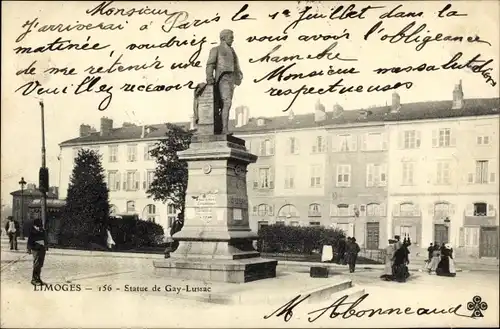 Monsieur,
J'arriverai à Paris le 1er Juillet dans la
matinée, voudriez-vous avoir l'obligeance
de me retenir une chambre.
Veuillez recevoir, Monsieur, mes salutations
respectueuses
M. Abonneaud
LIMOGES - 156 - Statue de Gay-Lussac